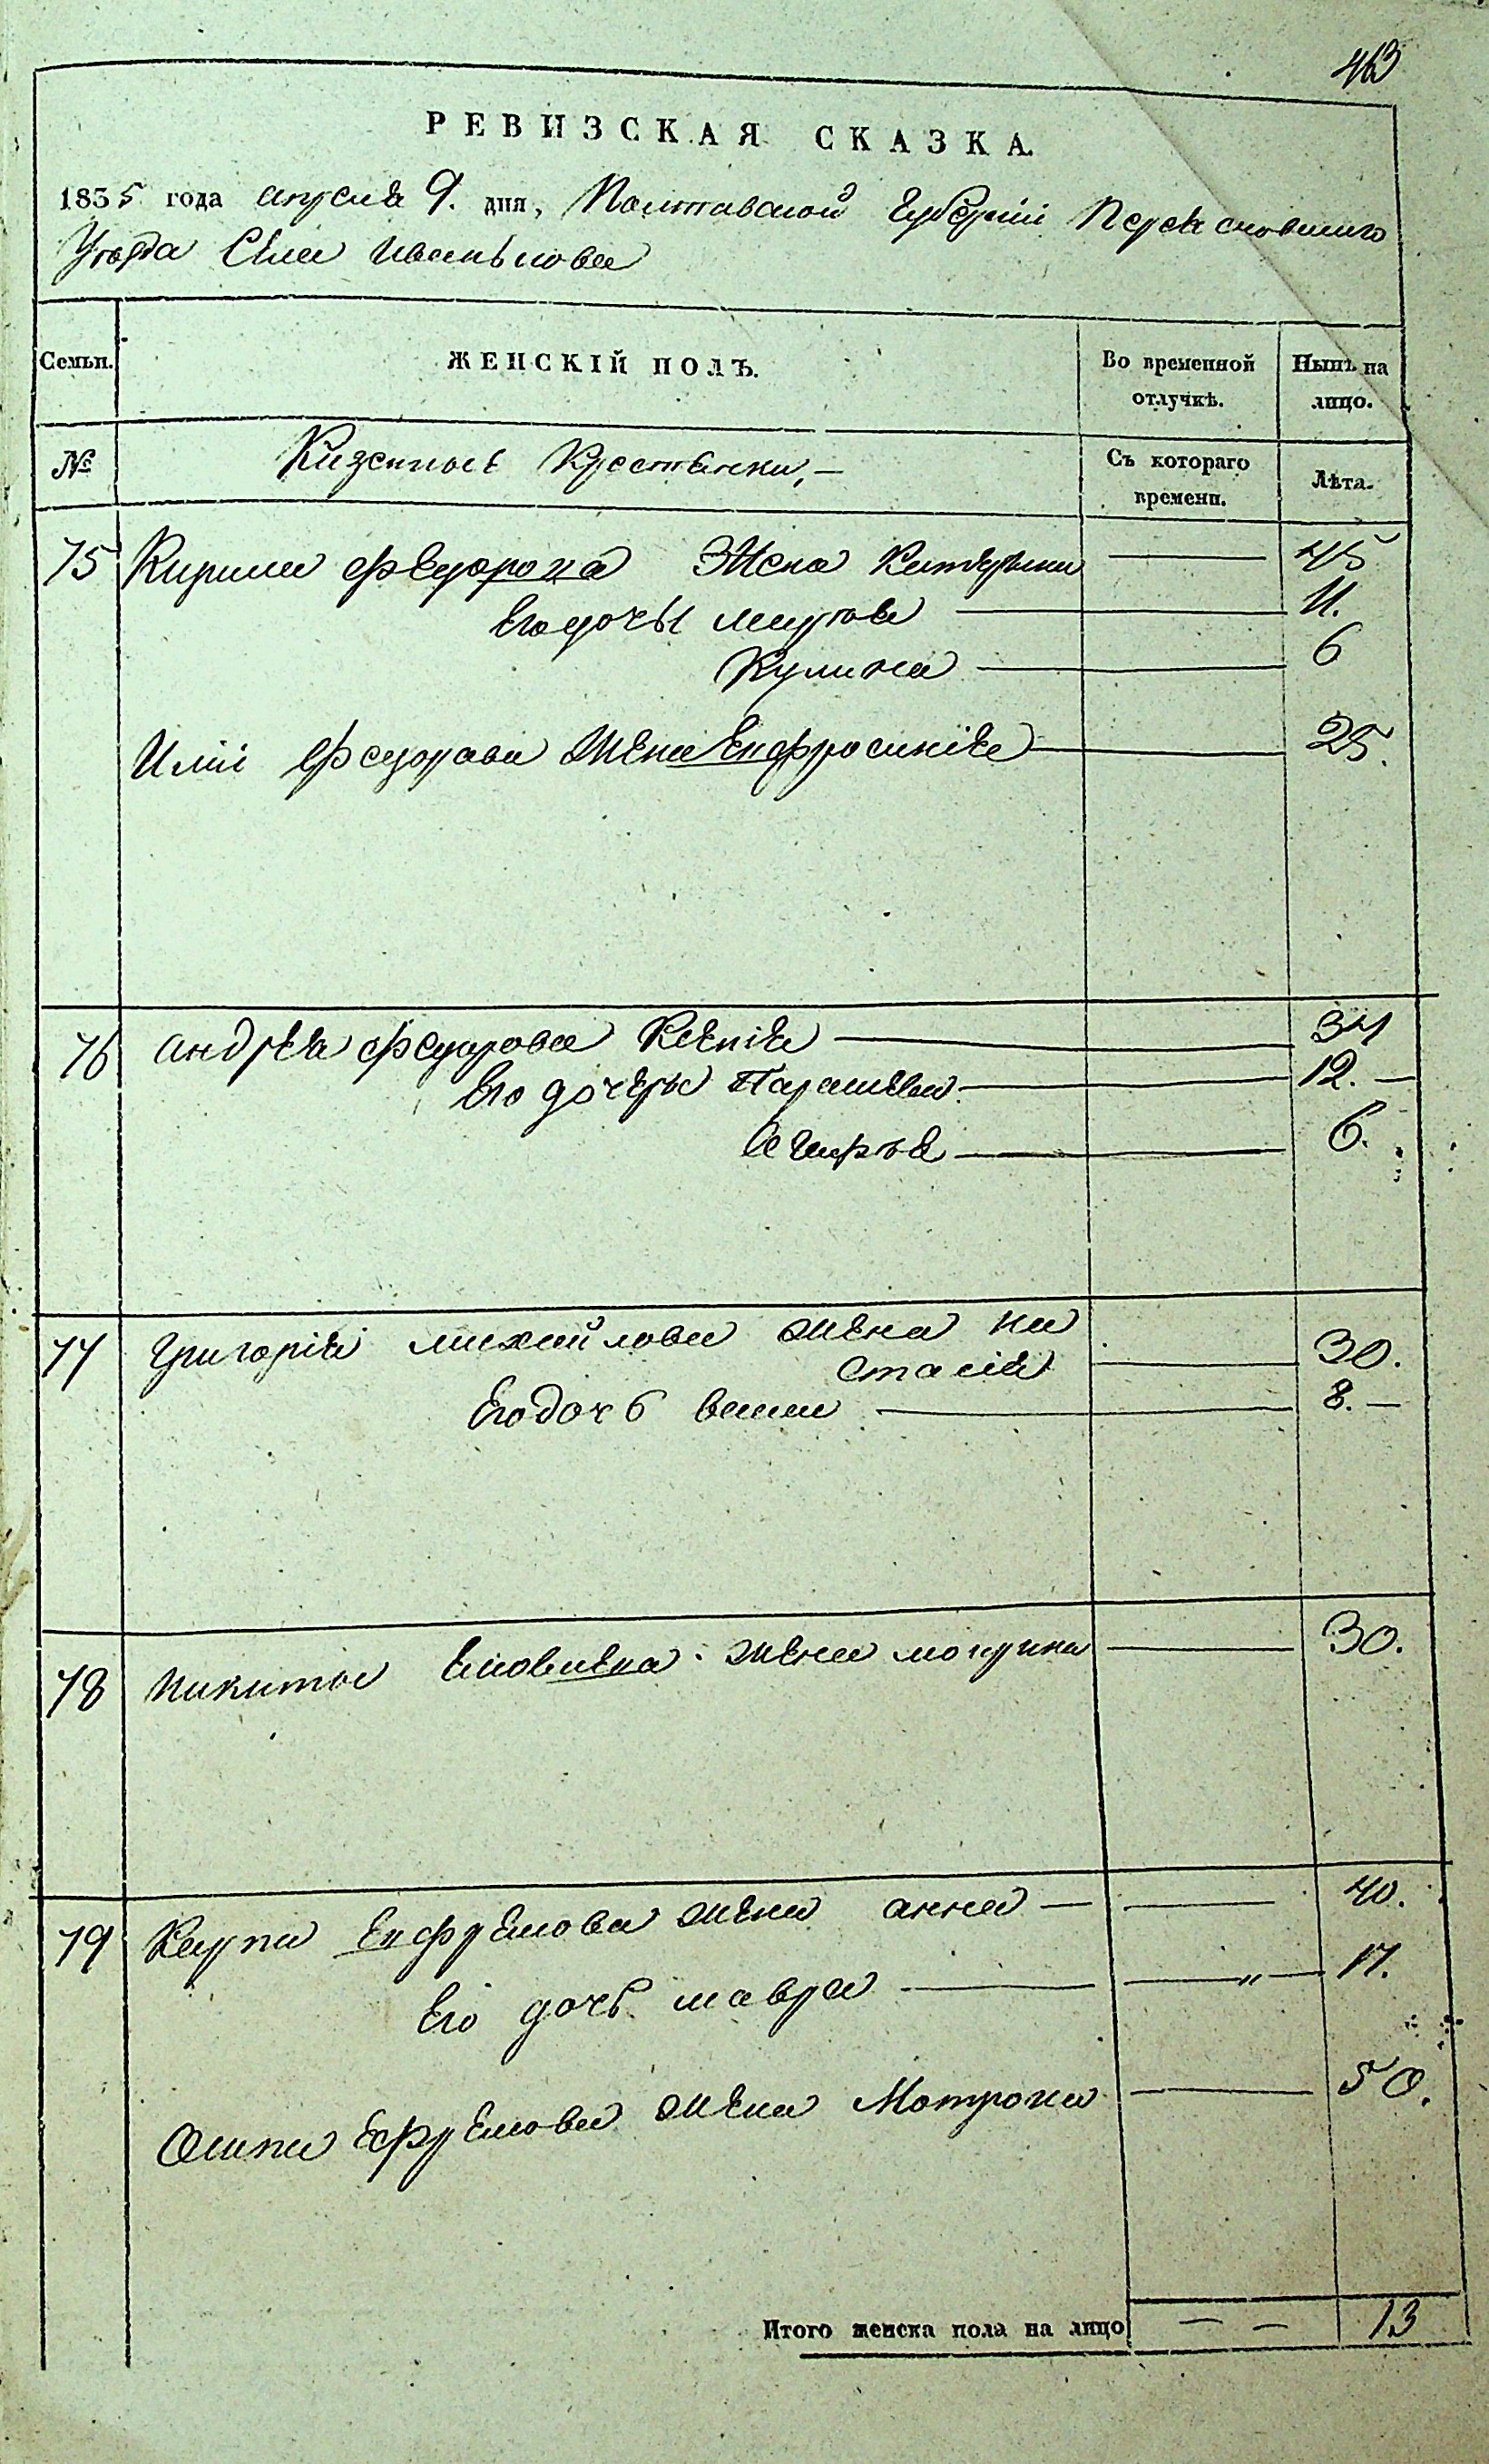 463
РЕВИЗСКАЯ СКАЗКА.
1835 года апреля 9. дня, Полтавской Губерніи Переясловскаго
Уезда Села Иванькова
Семьи. ЖЕНСКІЙ ПОЛЪ. Во временной отлучкѣ. Нынѣ на лицо.
№ Казенные Крестьянки, — Съ котораго времени. Лѣта.
75 Кирила Федорова Жена Катерина — 45
Его дочьи Марфа — 11.
Кулина — 6
Иліи Федорова Жена Евфросинія — 25.
76 Андрея Федорова Ксенія — 34
Его дочери Параскева — 12. —
Агафія — 6.
77 Григорія михайлова жена На
стасія — 30.
Его дочь — 8. —
78 Никиты жена — 30.
79 Карпа Ефремова жена анна — — 40.
Его дочь мавра — — " — 17.
Осипа Ефремова жена Мотрона — 50.
Итого женска пола на лицо — — 13